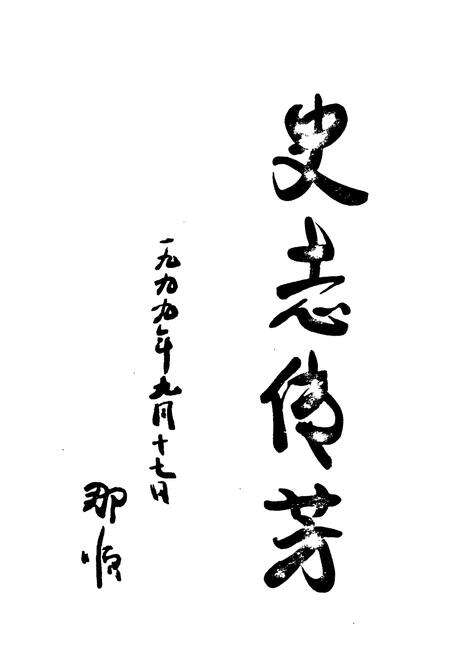 史志传芳
一九九九年九月十七日
那顺